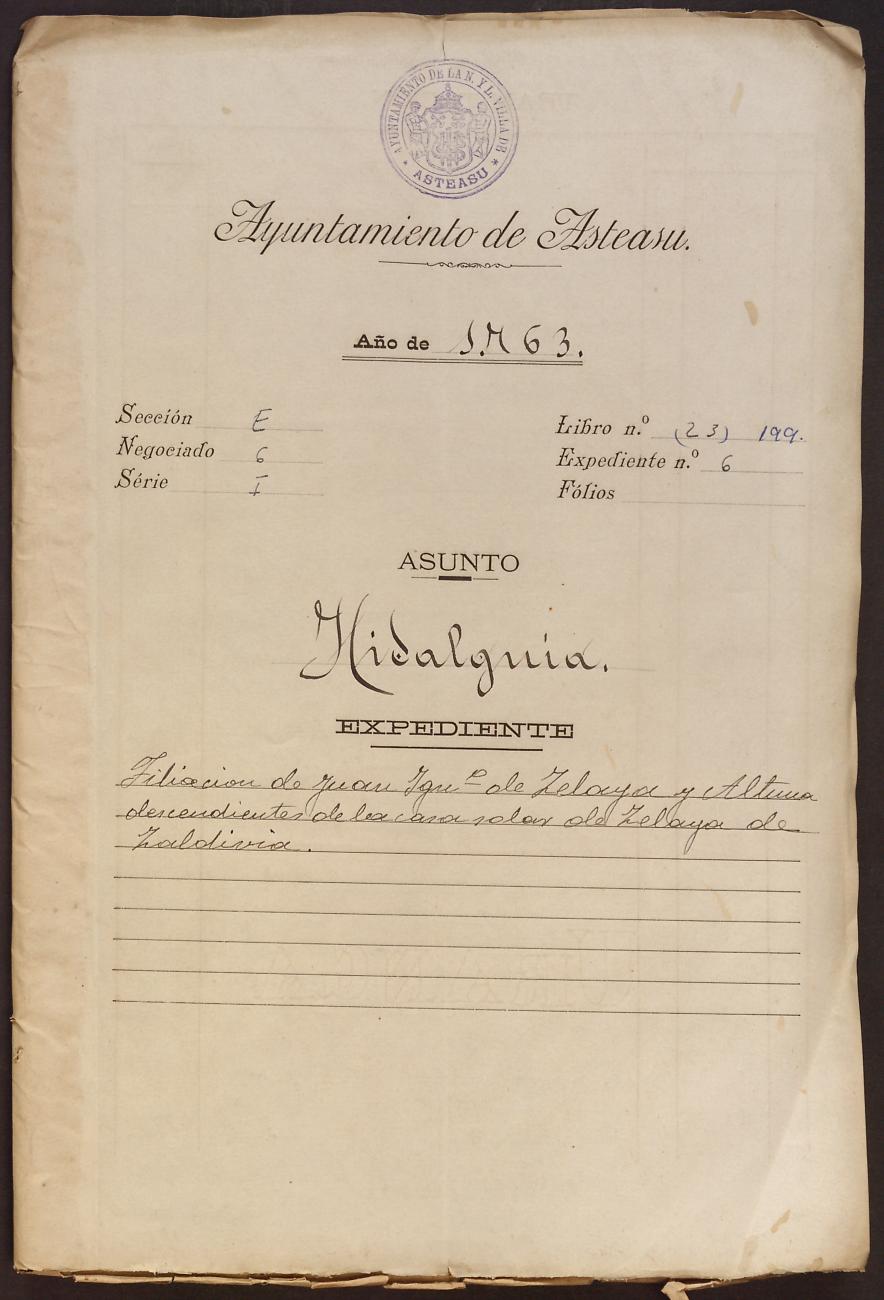 AYUNTAMIENTO DE LA N. Y L. VILLA DE
* ASTEASU *
Ayuntamiento de Asteasu.
Año de 1.763.
Sección E
Negociado 6
Série I
Libro n.º (23) 199.
Expediente n.º 6
Fólios
ASUNTO
Hidalguia.
EXPEDIENTE
Filiacion de Juan Ignº de Zelaya y Altuna
descendientes de la casa solar de Zelaya de
Zaldivia.